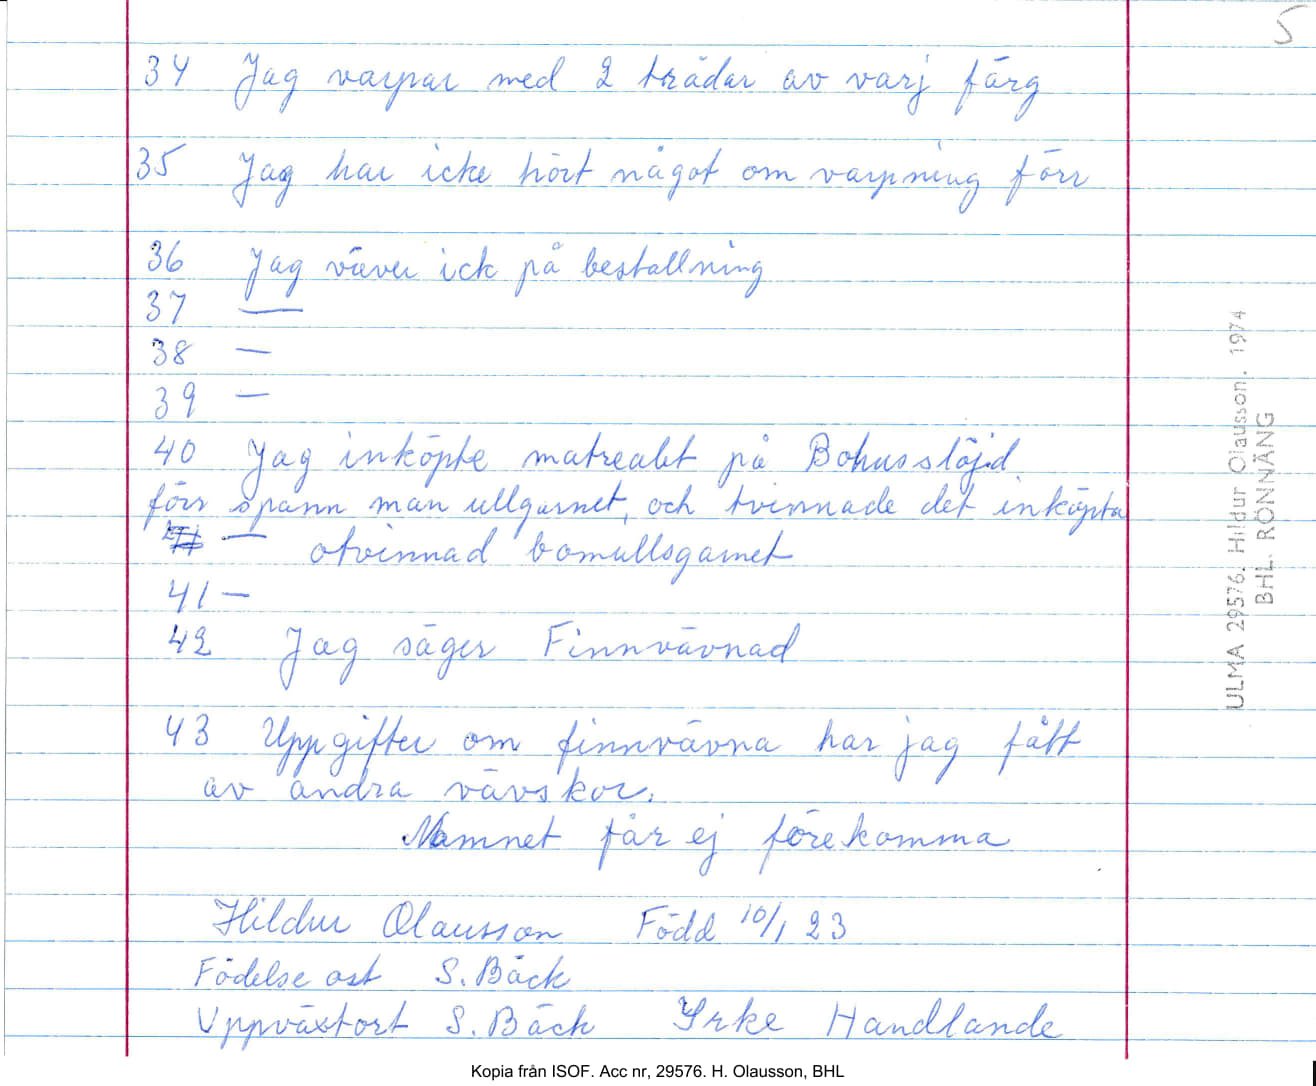 5
34 Jag varpar med 2 trådar av varj färg
35 Jag har icke hört något om varpning förr
36 Jag väver ick på bestallning
37 —
38 —
39 —
40 Jag inköpte matrealet på Bohusslöjd
förr spann man ullgarnet, och tvinnade det inköpta
— otvinnad bomullsgarnet
41 —
42 Jag säger Finnvävnad
43 Uppgifter om finnvävna har jag fått
av andra vävskor.
Namnet får ej förekomma
Hildur Olausson Född 10/1 23
Födelse ort S. Bäck
Uppväxtort S. Bäck Yrke Handlande
ULMA 29576. Hildur Olausson. 1974
BHL. RÖNNÄNG
Kopia från ISOF. Acc nr, 29576. H. Olausson, BHL